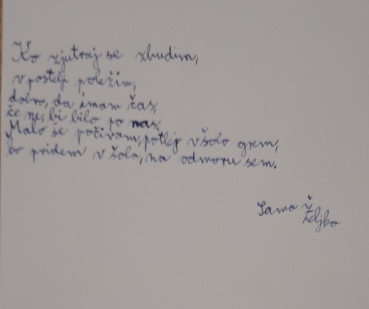 Ko zjutraj se zbudim,
v postelji poležim,
dobro, da imam čas,
če ne, bi bilo po nas.
Malo še počivam, potlej v šolo grem,
ko pridem v šolo, na odmoru sem.
Samo Željko